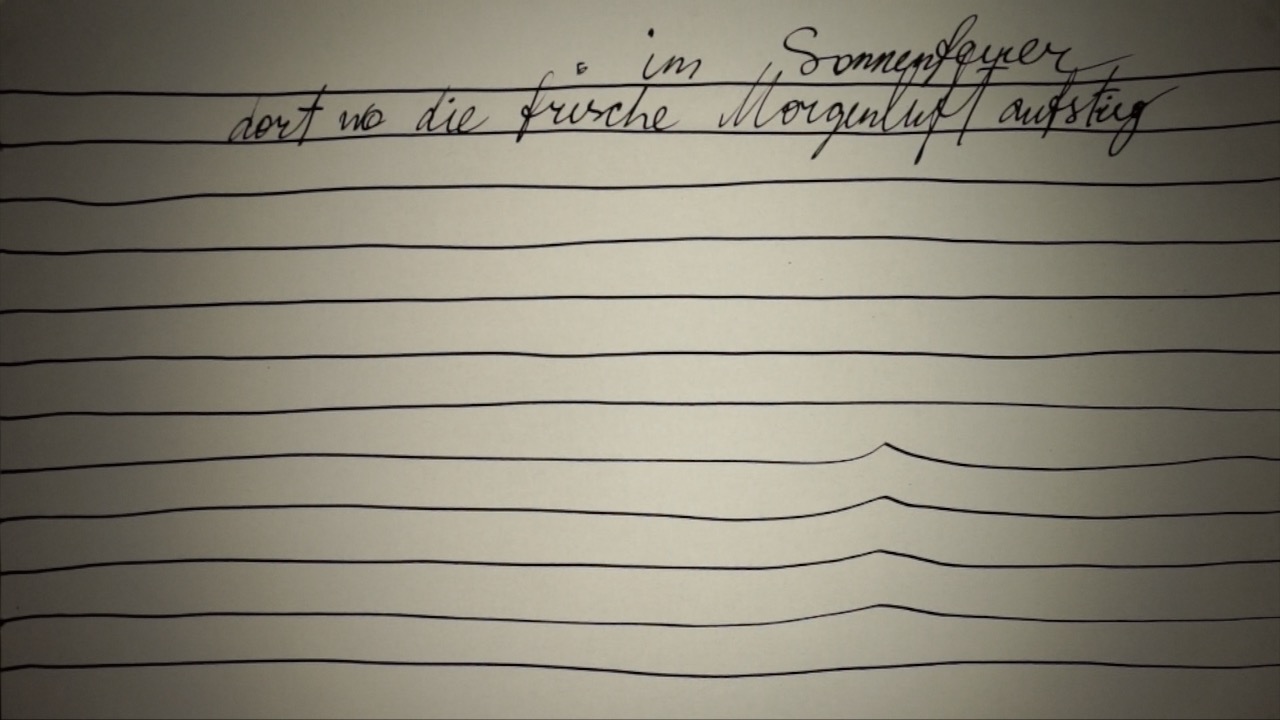 im Sonnenfeuer
dort wo die frische Morgenluft aufstieg